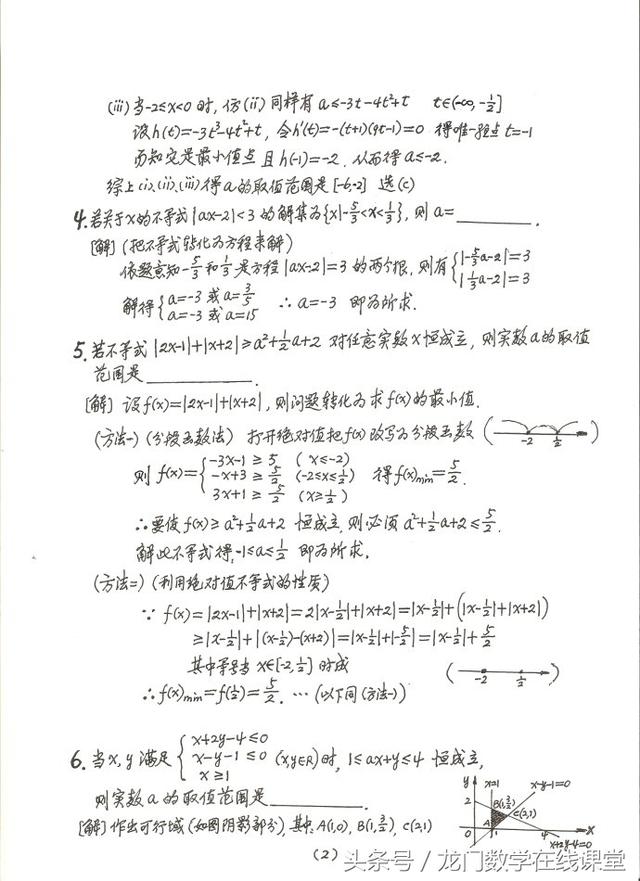 (iii)当-2≤x<0时,仿(ii)同样有 a≤-3t-4t²+t t∈(-∞,-1/2]
设h(t)=-3t³-4t²+t,令h'(t)=-(t+1)(9t-1)=0 得唯一驻点 t=-1
而知它是最小值点且 h(-1)=-2.从而得 a≤-2.
综上(i).(ii).(iii)得a的取值范围是[-6,-2] 选(C)
4.若关于x的不等式|ax-2|<3的解集为{x|-5/3<x<1/3},则a=________.
[解](把不等式转化为方程来解)
依题意知-5/3和1/3是方程|ax-2|=3的两个根,则有{|-5/3a-2|=3
|1/3a-2|=3
解得{a=-3 或 a=3/5
a=-3 或 a=15 ∴a=-3 即为所求.
5.若不等式|2x-1|+|x+2|≥a²+1/2a+2 对任意实数x恒成立,则实数a的取值
范围是________.
[解] 设f(x)=|2x-1|+|x+2|,则问题转化为求f(x)的最小值.
(方法一)(分段函数法) 打开绝对值把f(x)改写为分段函数( -2 1/2 )
则 f(x)={-3x-1≥5 (x≤-2)
-x+3≥5/2 (-2≤x≤1/2) 得f(x)min=5/2.
3x+1≥5/2 (x≥1/2)
∴要使f(x)≥a²+1/2a+2 恒成立,则必须a²+1/2a+2≤5/2.
解此不等式得,-1≤a≤1/2 即为所求.
(方法二)(利用绝对值不等式的性质)
∵ f(x)=|2x-1|+|x+2|=2|x-1/2|+|x+2|=|x-1/2|+(|x-1/2|+|x+2|)
≥|x-1/2|+|(x-1/2)-(x+2)|=|x-1/2|+|-5/2|=|x-1/2|+5/2
其中等号当 x∈[-2,1/2]时成 ( -2 1/2 )
∴f(x)min=f(1/2)=5/2. …(以下同(方法一))
6.当x,y满足{x+2y-4≤0
x-y-1≤0 (x,y∈R)时,1≤ax+y≤4 恒成立,
x≥1
则实数a的取值范围是________.
[解]作出可行域(如图阴影部分),其中,A(1,0),B(1,3/2),C(2,1)
y x=1 x-y-1=0
2 B(1,3/2)
C(2,1)
A
0 1 4 x
x+2y-4=0
(2)
头条号/龙门数学在线课堂